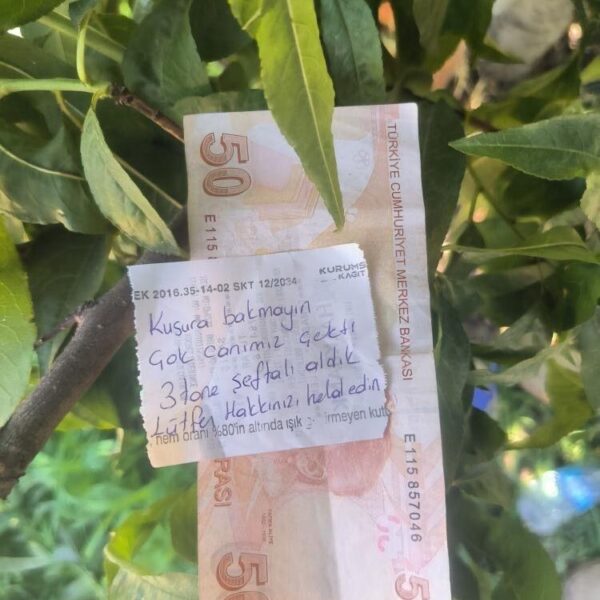 50
TÜRKİYE CUMHURİYET MERKEZ BANKASI
E 115 8
EK 2016.35-14-02 SKT 12/2034
KURUMS
KAĞIT
Kusura bakmayın
Çok canımız çekti
3 tane şeftali aldık
Lütfen Hakkınızı helal edin
nem oranı %80'in altında ışık
irmeyen kutu
E 115 857046
RASI
50
5